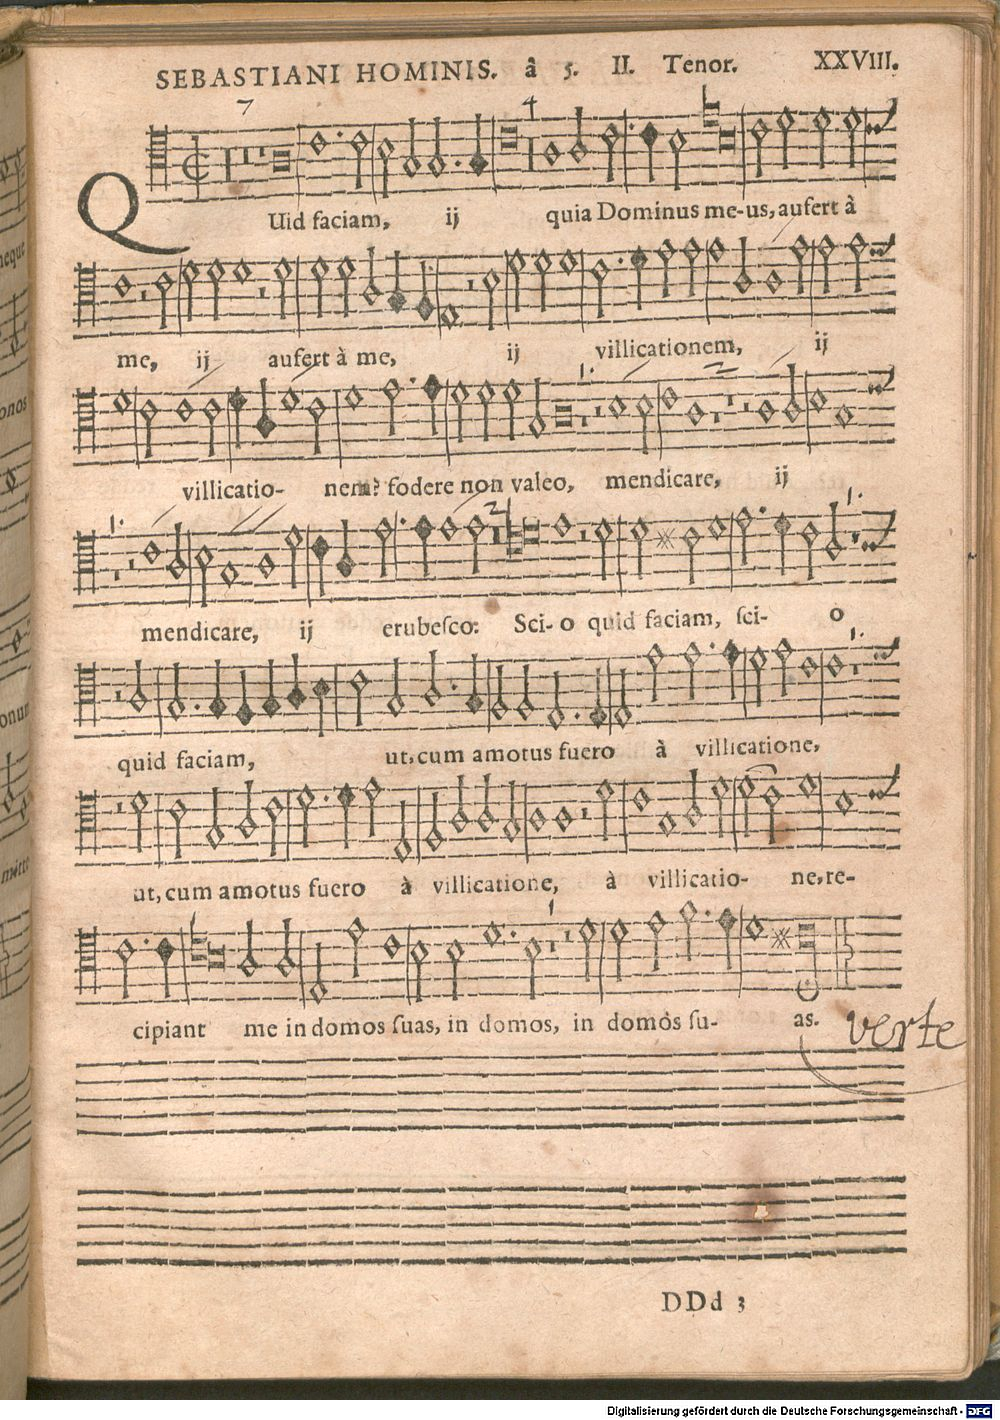 SEBASTIANI HOMINIS. â 5. II. Tenor. XXVIII.
7 4
QUid faciam, ij quia Dominus me-us, aufert à
me, ij aufert à me, ij villicationem, ij
1. 2
villicatio- nem? fodere non valeo, mendicare, ij
1. 2 1.
mendicare, ij erubeſco: Sci- o quid faciam, ſci- o
1.
quid faciam, ut, cum amotus fuero à villicatione,
ut, cum amotus fuero à villicatione, à villicatio- ne, re-
1
cipiant me in domos ſuas, in domos, in domòs ſu- as. verte
DDd 3
neque
onos
onum
mitte
Digitalisierung gefördert durch die Deutsche Forschungsgemeinschaft - DFG